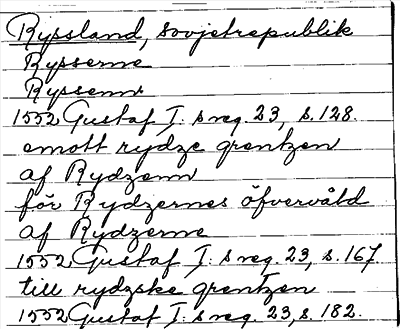 Ryssland, sovjetrepublik
Rysserne
Ryssenn
1552 Gustaf I:s reg. 23, s. 128.
emott rydze grentzen
af Rydzenn
för Rydzernes öfvervåld
af Rydzerne
1552 Gustaf I:s reg. 23, s. 167.
till rydzske grentzen
1552 Gustaf I:s reg. 23, s. 182.